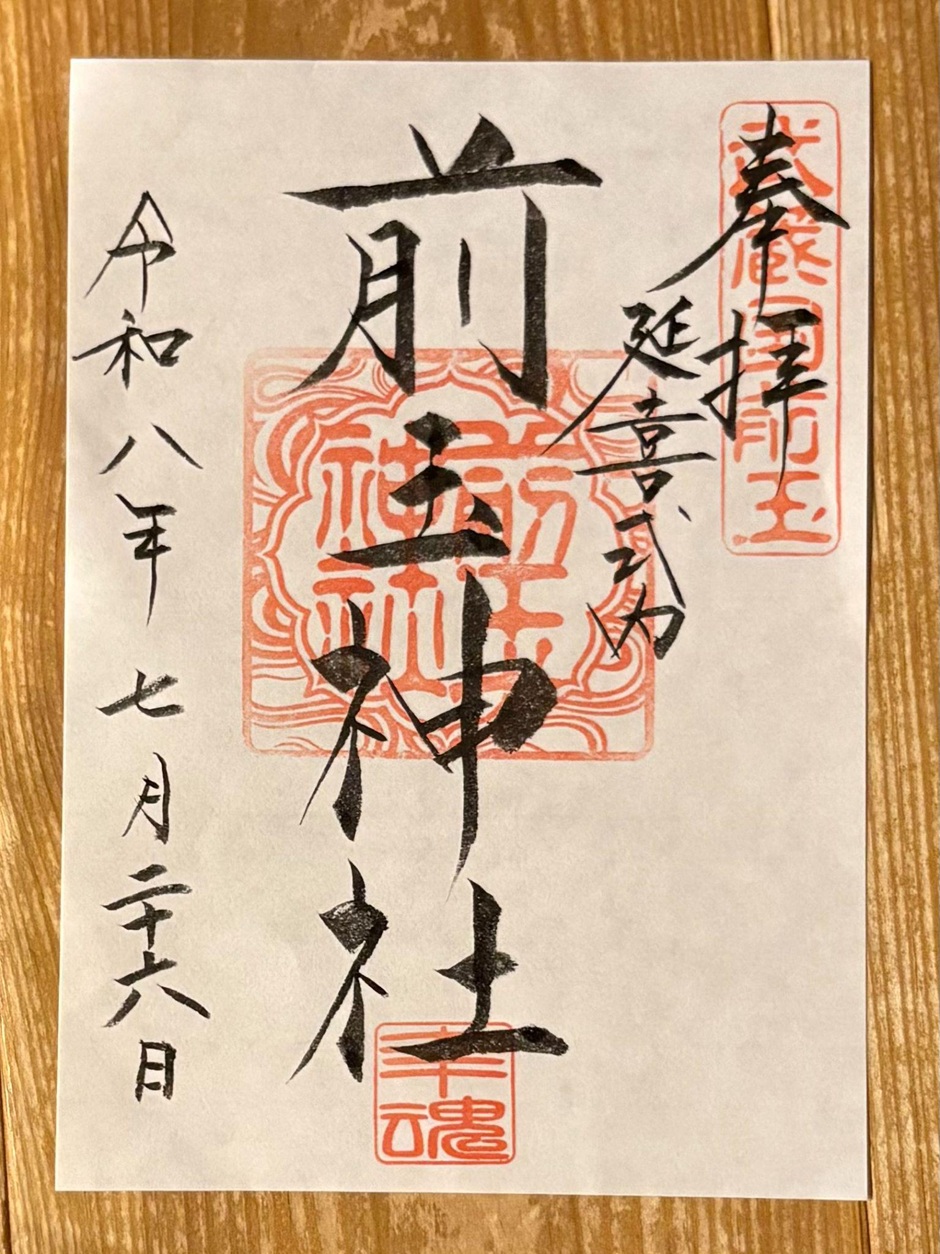 奉拝
武蔵国前玉
延喜式内
前玉神社
前玉神社
幸魂
令和八年七月二十六日